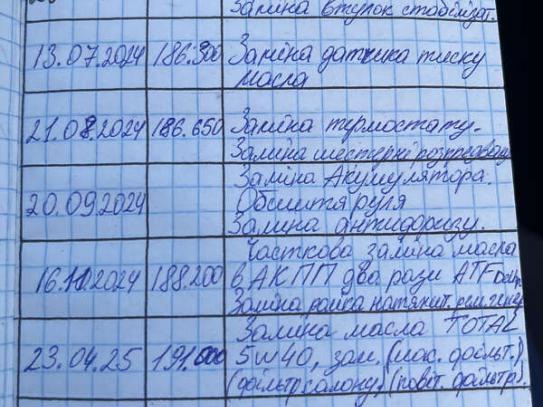 Заміна втулок стабілізат.
13.07.2024 186.300 Заміна датчика тиску
масла
21.08.2024 186.650 Заміна термостату.
Заміна шестерні розпредвалу
Заміна Акумулятора.
20.09.2024 Обшиття руля
Заміна антифризу.
Часткова заміна масла
16.10.2024 188.200 в АКПП два рази ATF
Заміна ролика натяжит.
Заміна масла TOTAL
23.04.25 191.000 5w40, зам. (мас. фільт.)
(фільтр салону, (повіт. фільтр).